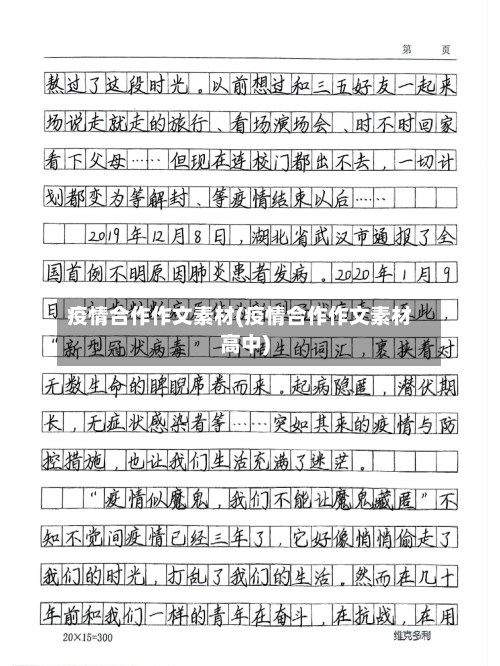 第 页
熬过了这段时光。以前想过和三五好友一起来
场说走就走的旅行、看场演场会、时不时回家
看下父母……但现在连校门都出不去,一切计
划都变为等解封、等疫情结束以后……
2019年12月8日,湖北省武汉市通报了全
国首例不明原因肺炎患者发病。2020年1月9
日
疫情合作作文素材(疫情合作作文素材
高中)
此,
“新型冠状病毒”
生的词汇,裹挟着对
无数生命的睥睨席卷而来。起病隐匿,潜伏期
长,无症状感染者等……突如其来的疫情与防
控措施,也让我们生活充满了迷茫。
“疫情似魔鬼,我们不能让魔鬼藏匿”不
知不觉间疫情已经三年了,它好像悄悄偷走了
我们的时光,打乱了我们的生活。然而在几十
年前和我们一样的青年在奋斗,在抗战,在用
20×15=300 维克多利